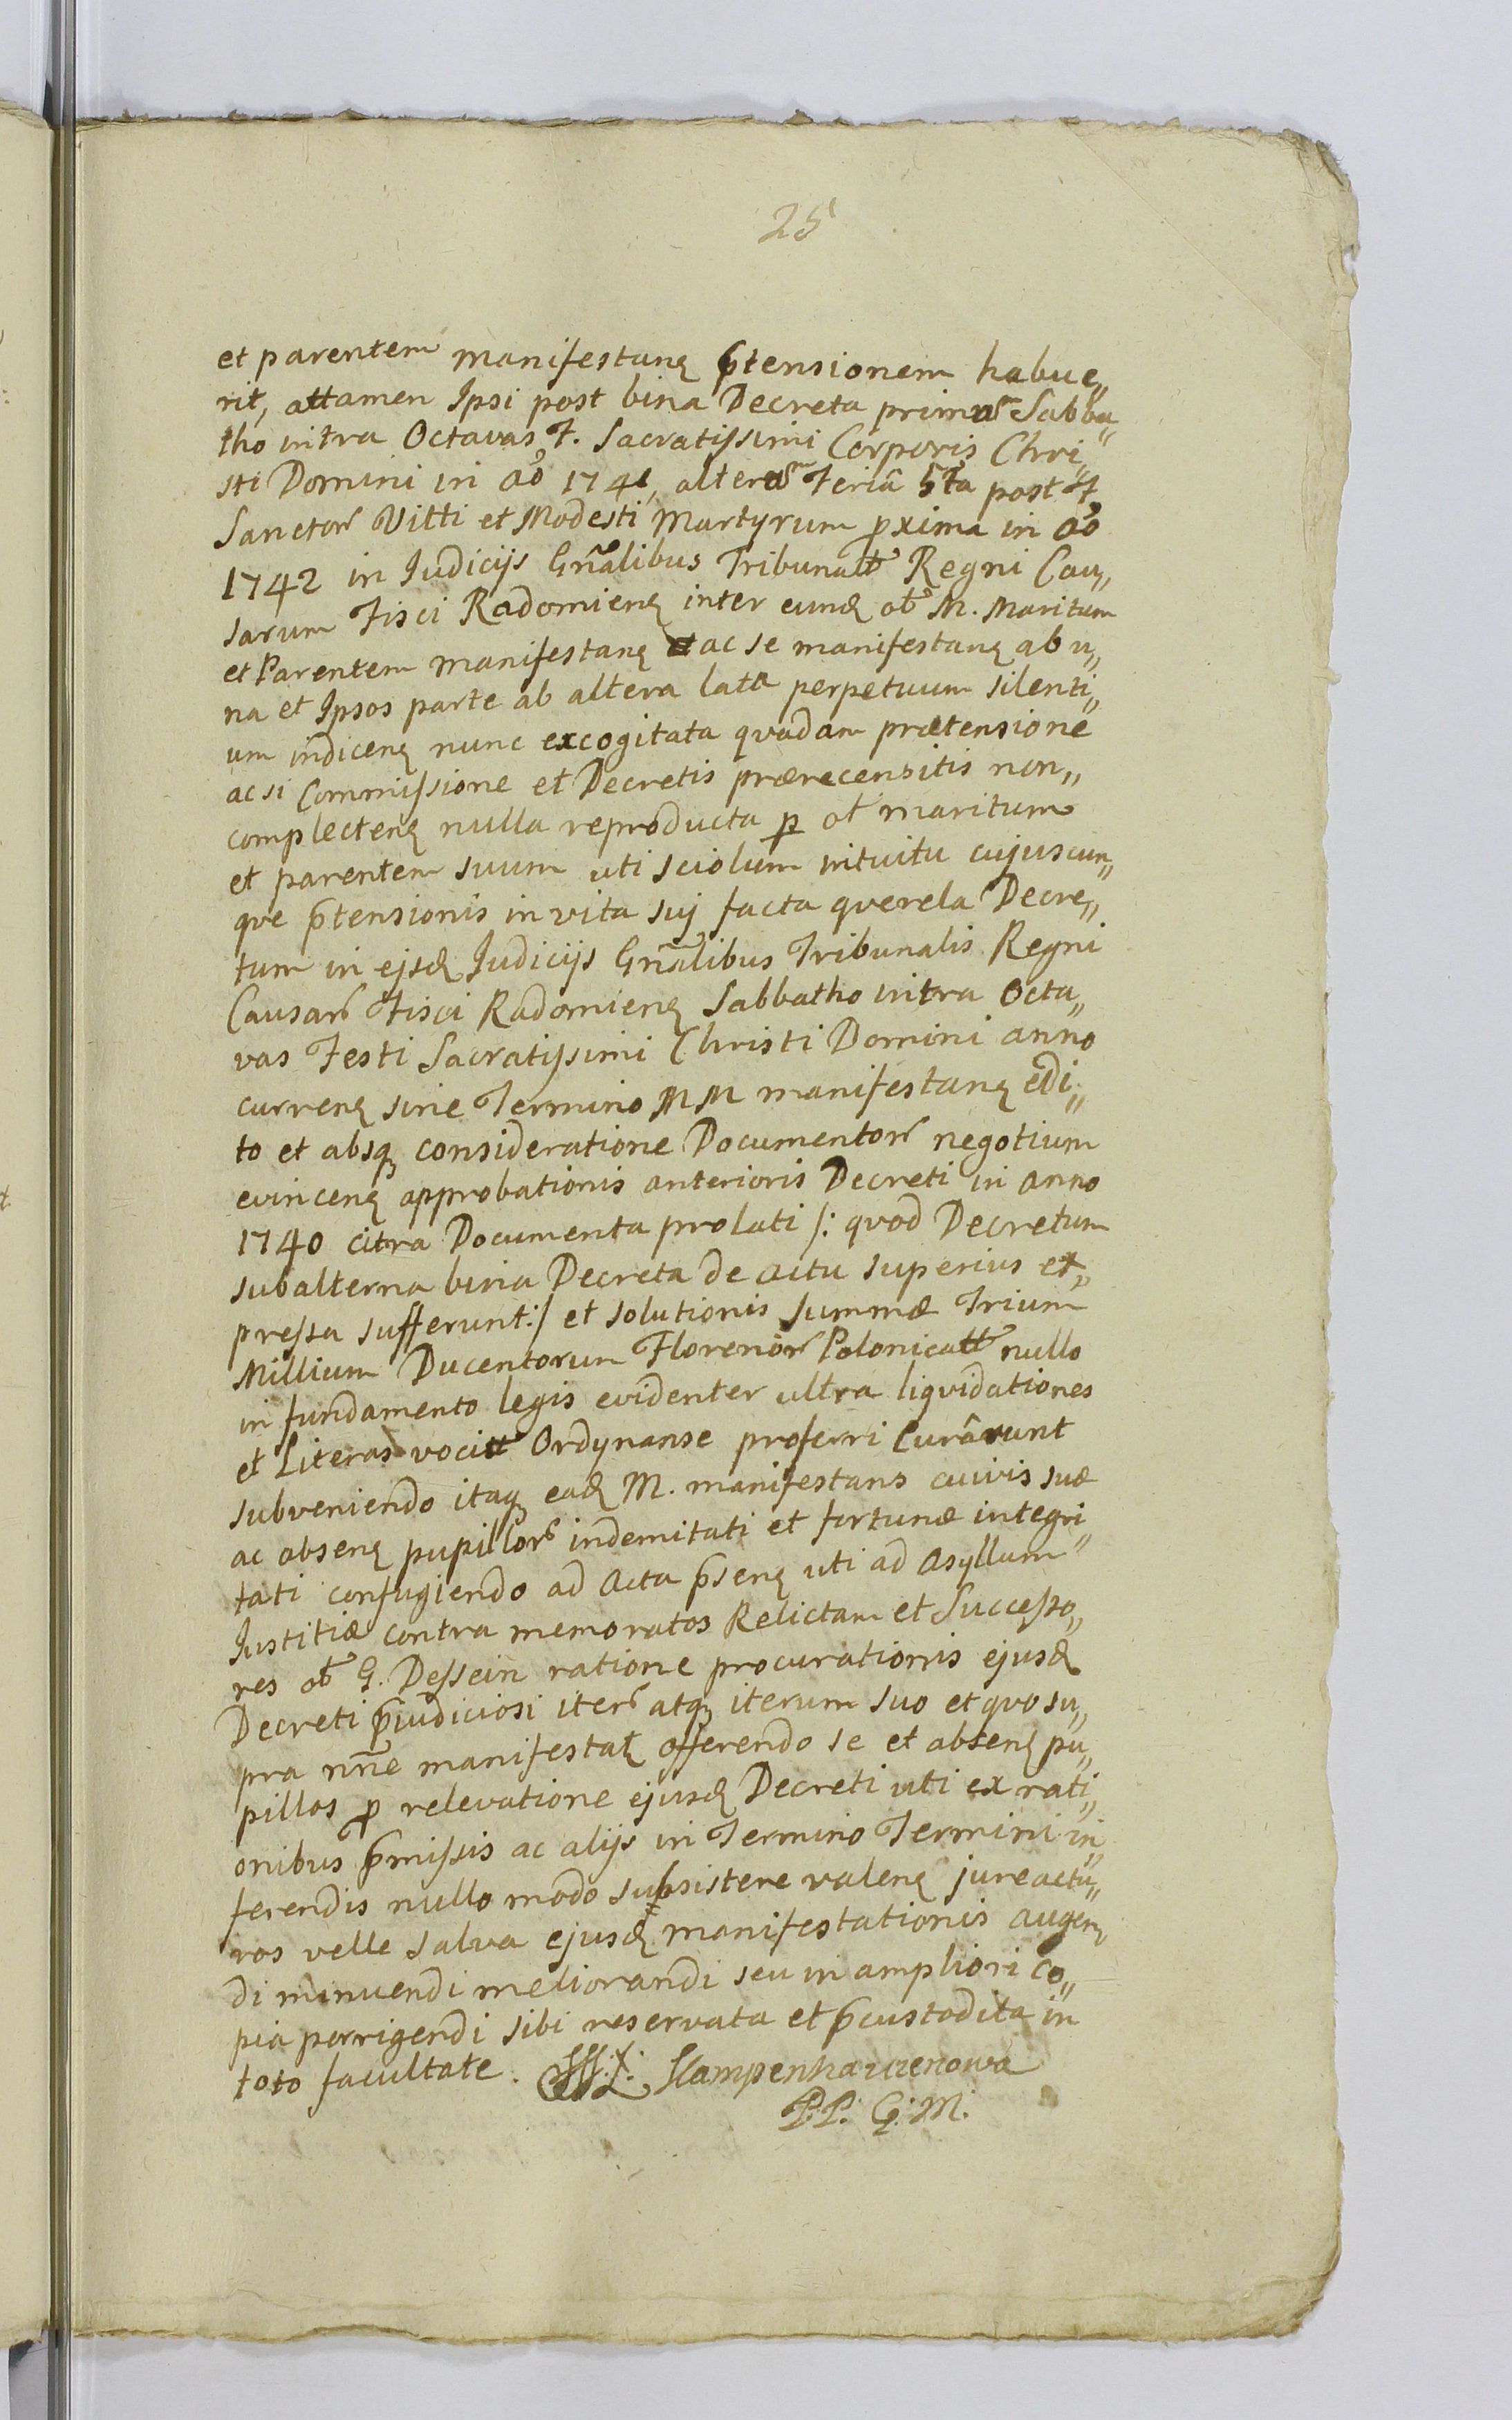 25
et parentem manifestanꝫ p̄tensionem habue„
rit, attamen Ipsi post bina Decreta primū Sabba„
tho intra Octavas F. Sacratissimi Corporis Chri„
sti Domini in Aō 1741, alterūm Feriâ 5ta post F.
Sanctor Vitti et Modesti Martyrum pxima in Aō
1742 in Judicijs Gn̄alibus Tribunatt Regni Cau„
sarum Fisci Radomienꝫ inter eund ot M. Maritum
et Parentem manifestanꝫ ac se manifestanꝫ ab u„
na et Ipsos parte ab altera lata perpetuum silenti„
um indicenꝫ nunc excogitata qvadam prætensione
ac si Commissione et Decretis prærecensitis non„
complectenꝫ nulla reproducta p ot maritum
et parentem suum uti sciolum intuitu cujuscun„
qve p̄tensionis in vita sui facta qverela Decre„
tum in ejsd Judicijs Gn̄alibus Tribunalis Regni
Causar Fisci Radomienꝫ Sabbatho intra Octa„
vas Festi Sacratissimi Christi Domini anno
currenꝫ sine Termino MM manifestanꝫ edi„
to et absqꝫ consideratione Documentor negotium
evincenꝫ approbationis anterioris Decreti in anno
1740 citra Documenta prolati /: qvod Decretum
subalterna bina Decreta de actu superius ex„
pressa sufferunt:/ et solutionis summæ Trium
Millium Ducentorum Florenor Polonicatt nullo
in fundamento legis evidenter ultra liqvidationes
et Literas vocitt Ordynanse proferri curârunt
subveniendo itaqꝫ ead M. manifestans cuivis suæ
ac absenꝫ pupillor indemitati et fortunæ integri„
tati confugiendo ad Acta p̄senꝫ uti ad Asyllum
Justitiæ contra memoratos Relictam et Successo„
res ot G. Dessein ratione procurationis ejusd
Decreti p̄iudiciosi iter atqꝫ iterum suo et qvo su„
pra nn̄e manifestatꝫ offerendo se et absenꝫ pu„
pillos p relevatione ejusd Decreti uti ex rati„
onibus p̄missis ac alijs in Termino Termini in„
ferendis nullo modo subsistere valenꝫ jure actu„
ros velle salva ejusd manifestationis augen„
di minuendi meliorandi seu in ampliori co„
pia porrigendi sibi reservata et p̄custodita in
toto facultate. Kampenhauzenowa
P.P. G: M.